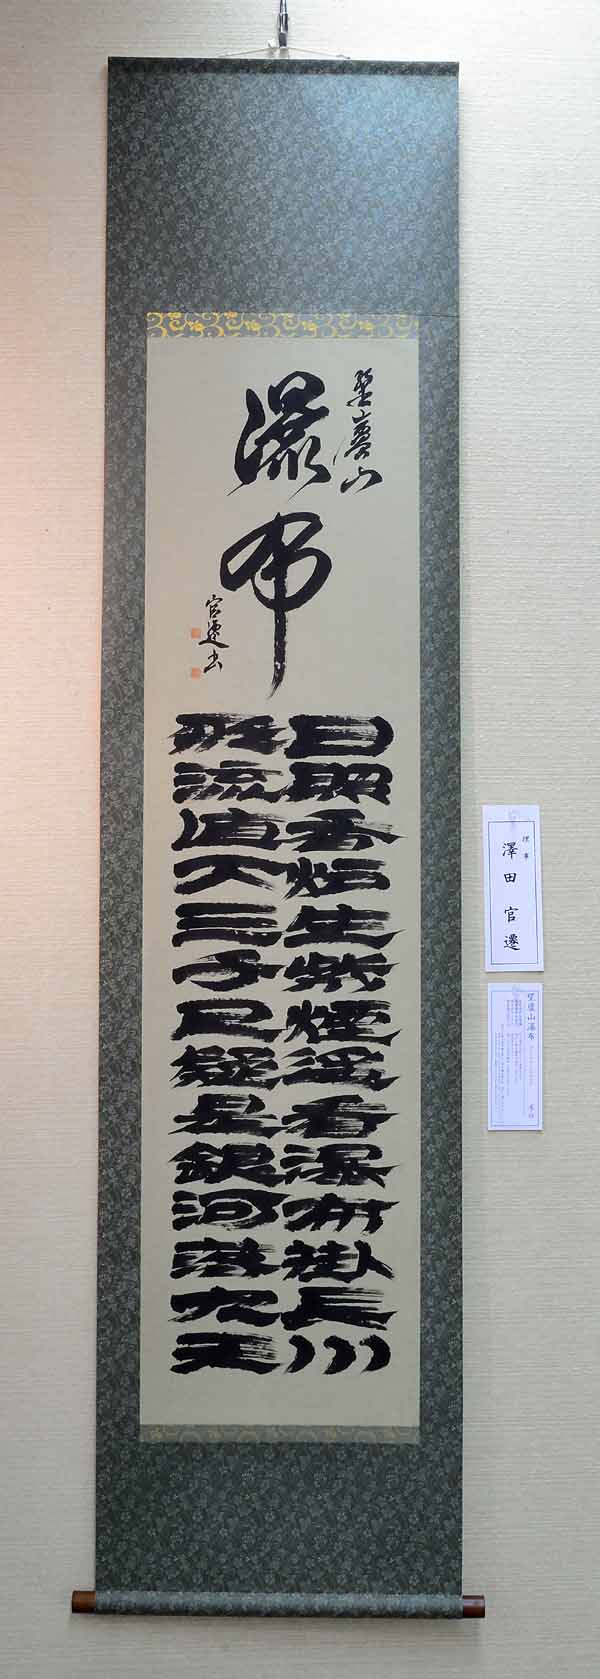 望廬山
瀑布
官遷書
日照香炉生紫煙遥看瀑布掛長川
飛流直下三千尺疑是銀河落九天
理事
澤田 官遷
望廬山瀑布
李白